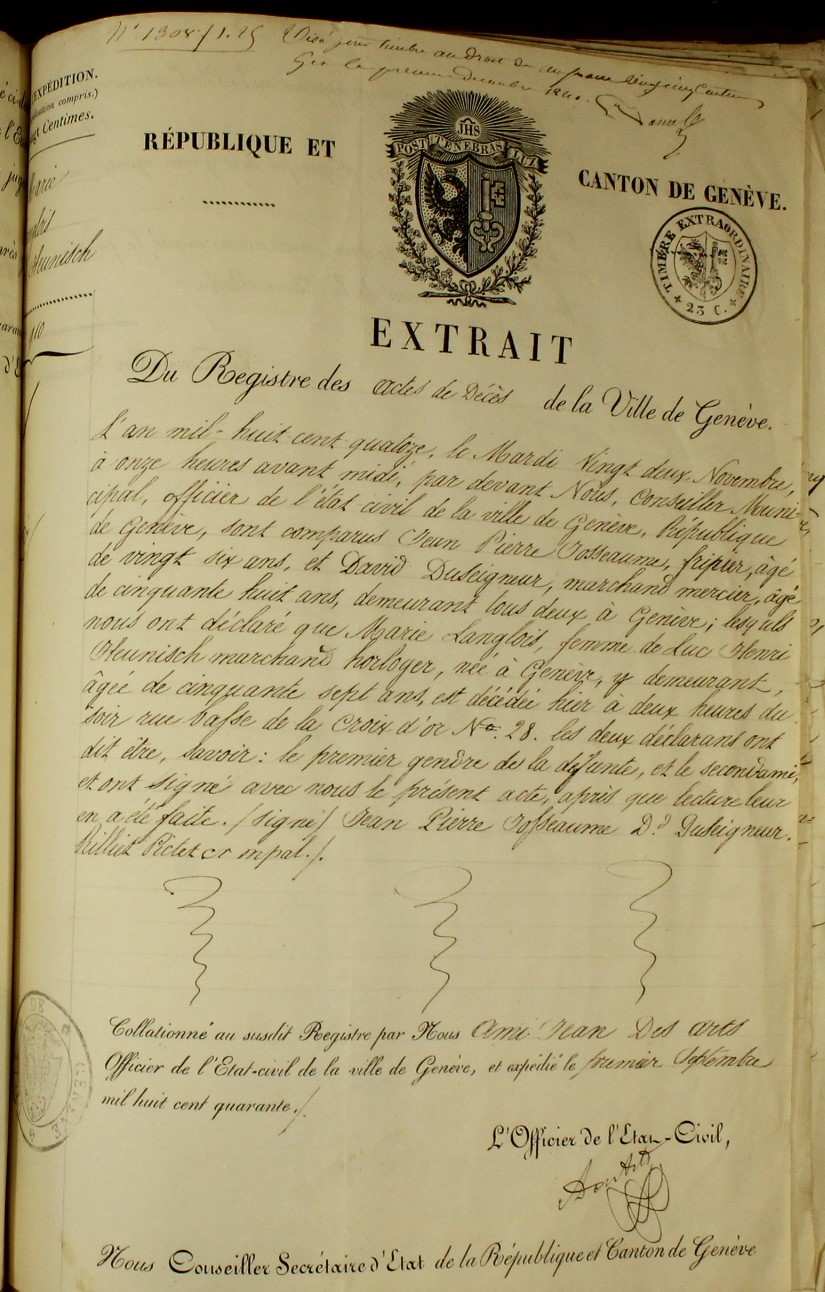 N° 1308 / 1.25 Visé pour timbre au droit de
Ge le premier Décembre 1840.
EXPÉDITION.
compris.)
Centimes.
Heunisch
RÉPUBLIQUE ET
JHS
POST TENEBRAS LUX
CANTON DE GENÈVE.
TIMBRE EXTRAORDINAIRE
25 C.
EXTRAIT
Du Registre des actes de Décès de la Ville de Genève.
L'an mil-huit cent quatoze, le Mardi Vingt deux Novembre,
à onze heures avant midi, par devant Nous, Conseiller Muni-
cipal, officier de l'état civil de la ville de Genève, République
de Genève, sont comparus Jean Pierre Josseaume, fripier, âgé
de vingt six ans, et David Duseigneur, marchand mercier, âgé
de cinquante huit ans, demeurant tous deux à Genève; lesquels
nous ont déclaré que Marie Langlois, femme de Luc Henri
Heunisch marchand horloger, née à Genève, y demeurant,
âgée de cinquante sept ans, est décédée hier à deux heures du
soir rue basse de la Croix d'or No. 28. les deux déclarans ont
dit être, savoir: le premier gendre de la défunte, et le second ami,
et ont signé avec nous le présent acte, après que lecture leur
en a été faite. / signé / Jean Pierre Josseaume D.d Duseigneur.
Rilliet Pictet cr mpal. /.
Collationné au susdit Registre par Nous Ami Jean Des arts
Officier de l'Etat-civil de la ville de Genève, et expédié le premier Septembre
mil huit cent quarante. /.
L'Officier de l'Etat-Civil,
Nous Conseiller Secrétaire d'Etat de la République et Canton de Genève